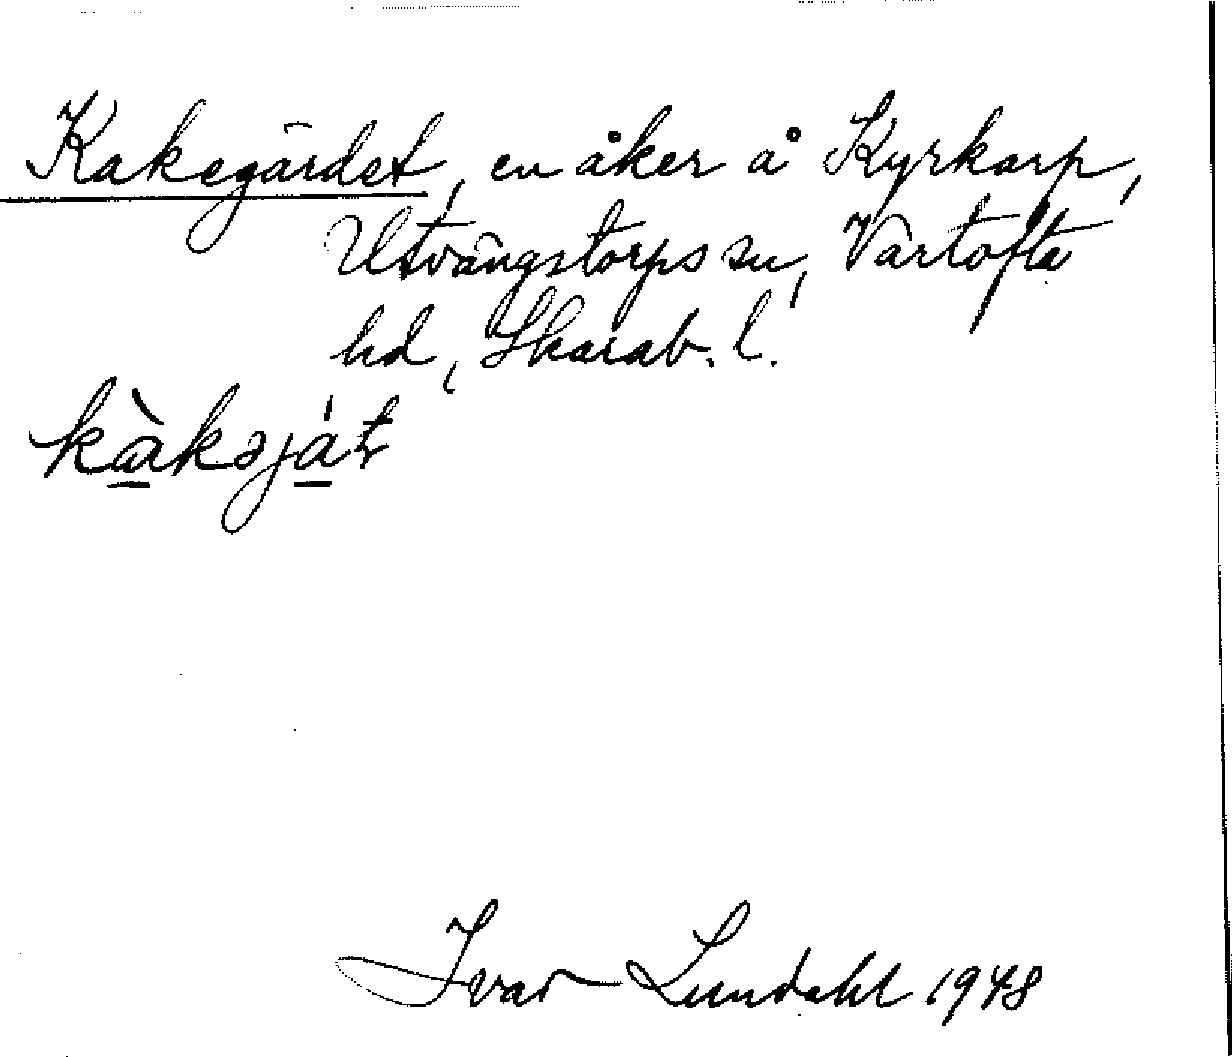 Kakegärdet, en åker å Kyrkarp,
Utvängstorps sn, Vartofta
hd, Skarab. l.
kàkəját
Ivar Lundahl 1948